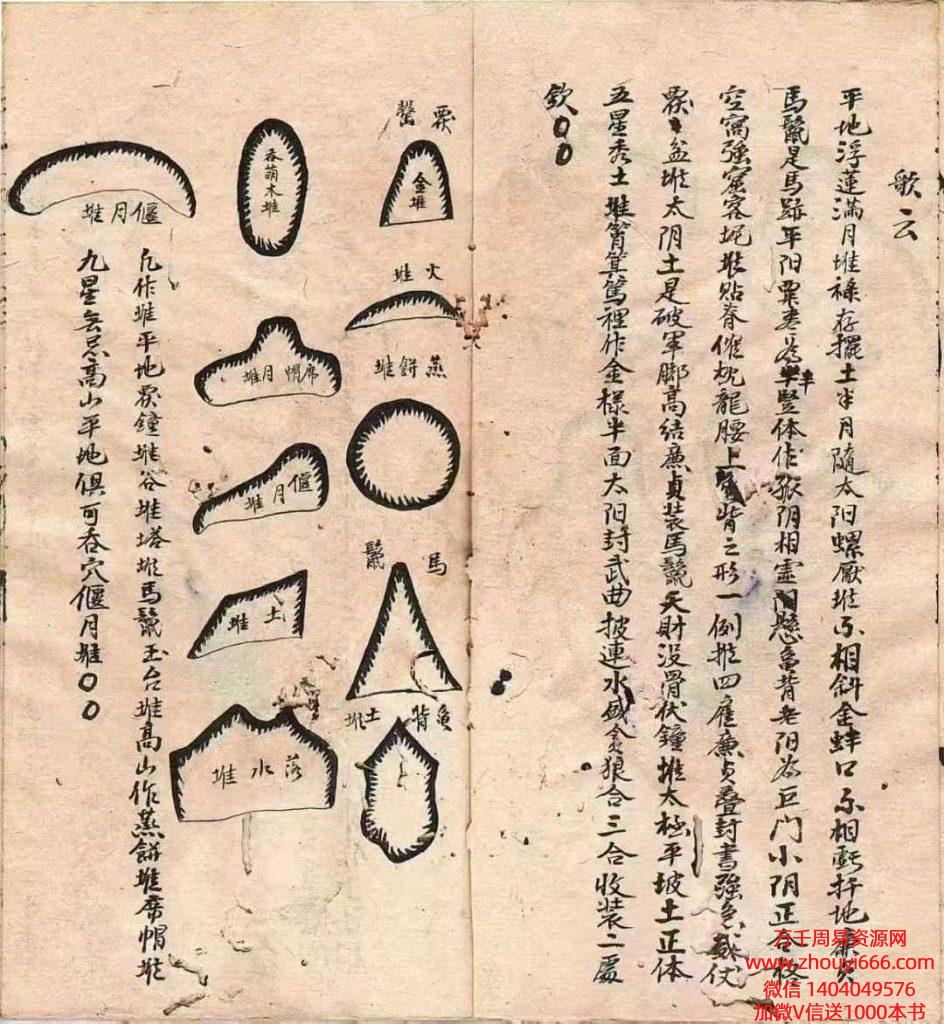 歌云
平地浮蓮滿月堆祿存擺土半月隨太阳螺厭堆不相斜金蚌口不相虧扦地
馬鬣是馬跡平阳粟孛豎体作孤阴相靈懸龜背老阳為巨门小阴正合
空窩強窟容堆貼脊催枕龍腰上背之形一例推四隹廉贞叠封書強
盆堆太阴土是破军脚高结廉貞装馬鬣天財没骨伏鐘堆太極平坡土正体
五星秀土堆箕裡作金樣半面太阳封武曲披連水貪狼合三合收装二處
欽
罄
金堆
火堆
蒸餅堆
馬鬣
龜背土堆
吞萌木堆
席帽月堆
偃月堆
土堆
落水堆
偃月堆
凡作堆平地鐘堆谷堆塔堆馬鬣玉台堆高山作蒸餅堆席帽堆
九星無忌高山平地俱可吞穴偃月堆
万千周易资源网
www.zhouyi666.com
微信 1404049576
加微V信送1000本书